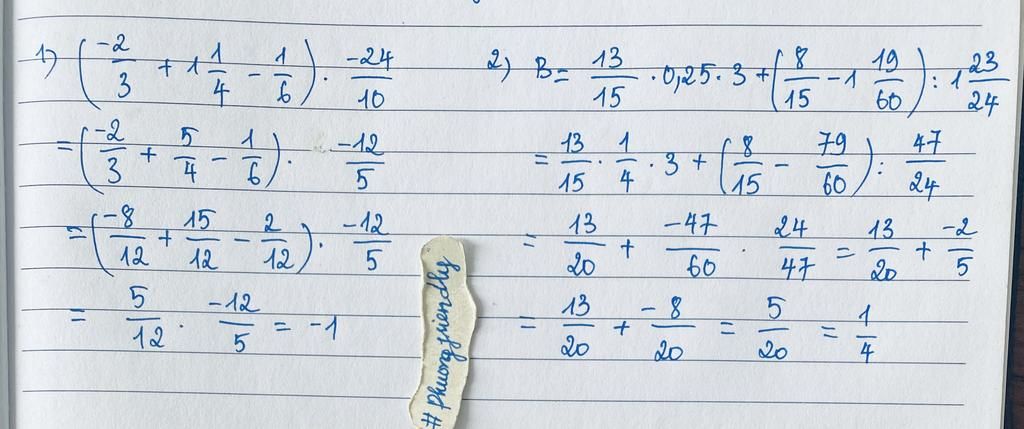 1) (-2/3 + 1 1/4 - 1/6) . -24/10
= (-2/3 + 5/4 - 1/6) . -12/5
= (-8/12 + 15/12 - 2/12) . -12/5
= 5/12 . -12/5 = -1
2) B = 13/15 . 0,25 . 3 + (8/15 - 1 19/60) : 1 23/24
= 13/15 . 1/4 . 3 + (8/15 - 79/60) : 47/24
= 13/20 + -47/60 . 24/47 = 13/20 + -2/5
= 13/20 + -8/20 = 5/20 = 1/4
#phuongfriendly